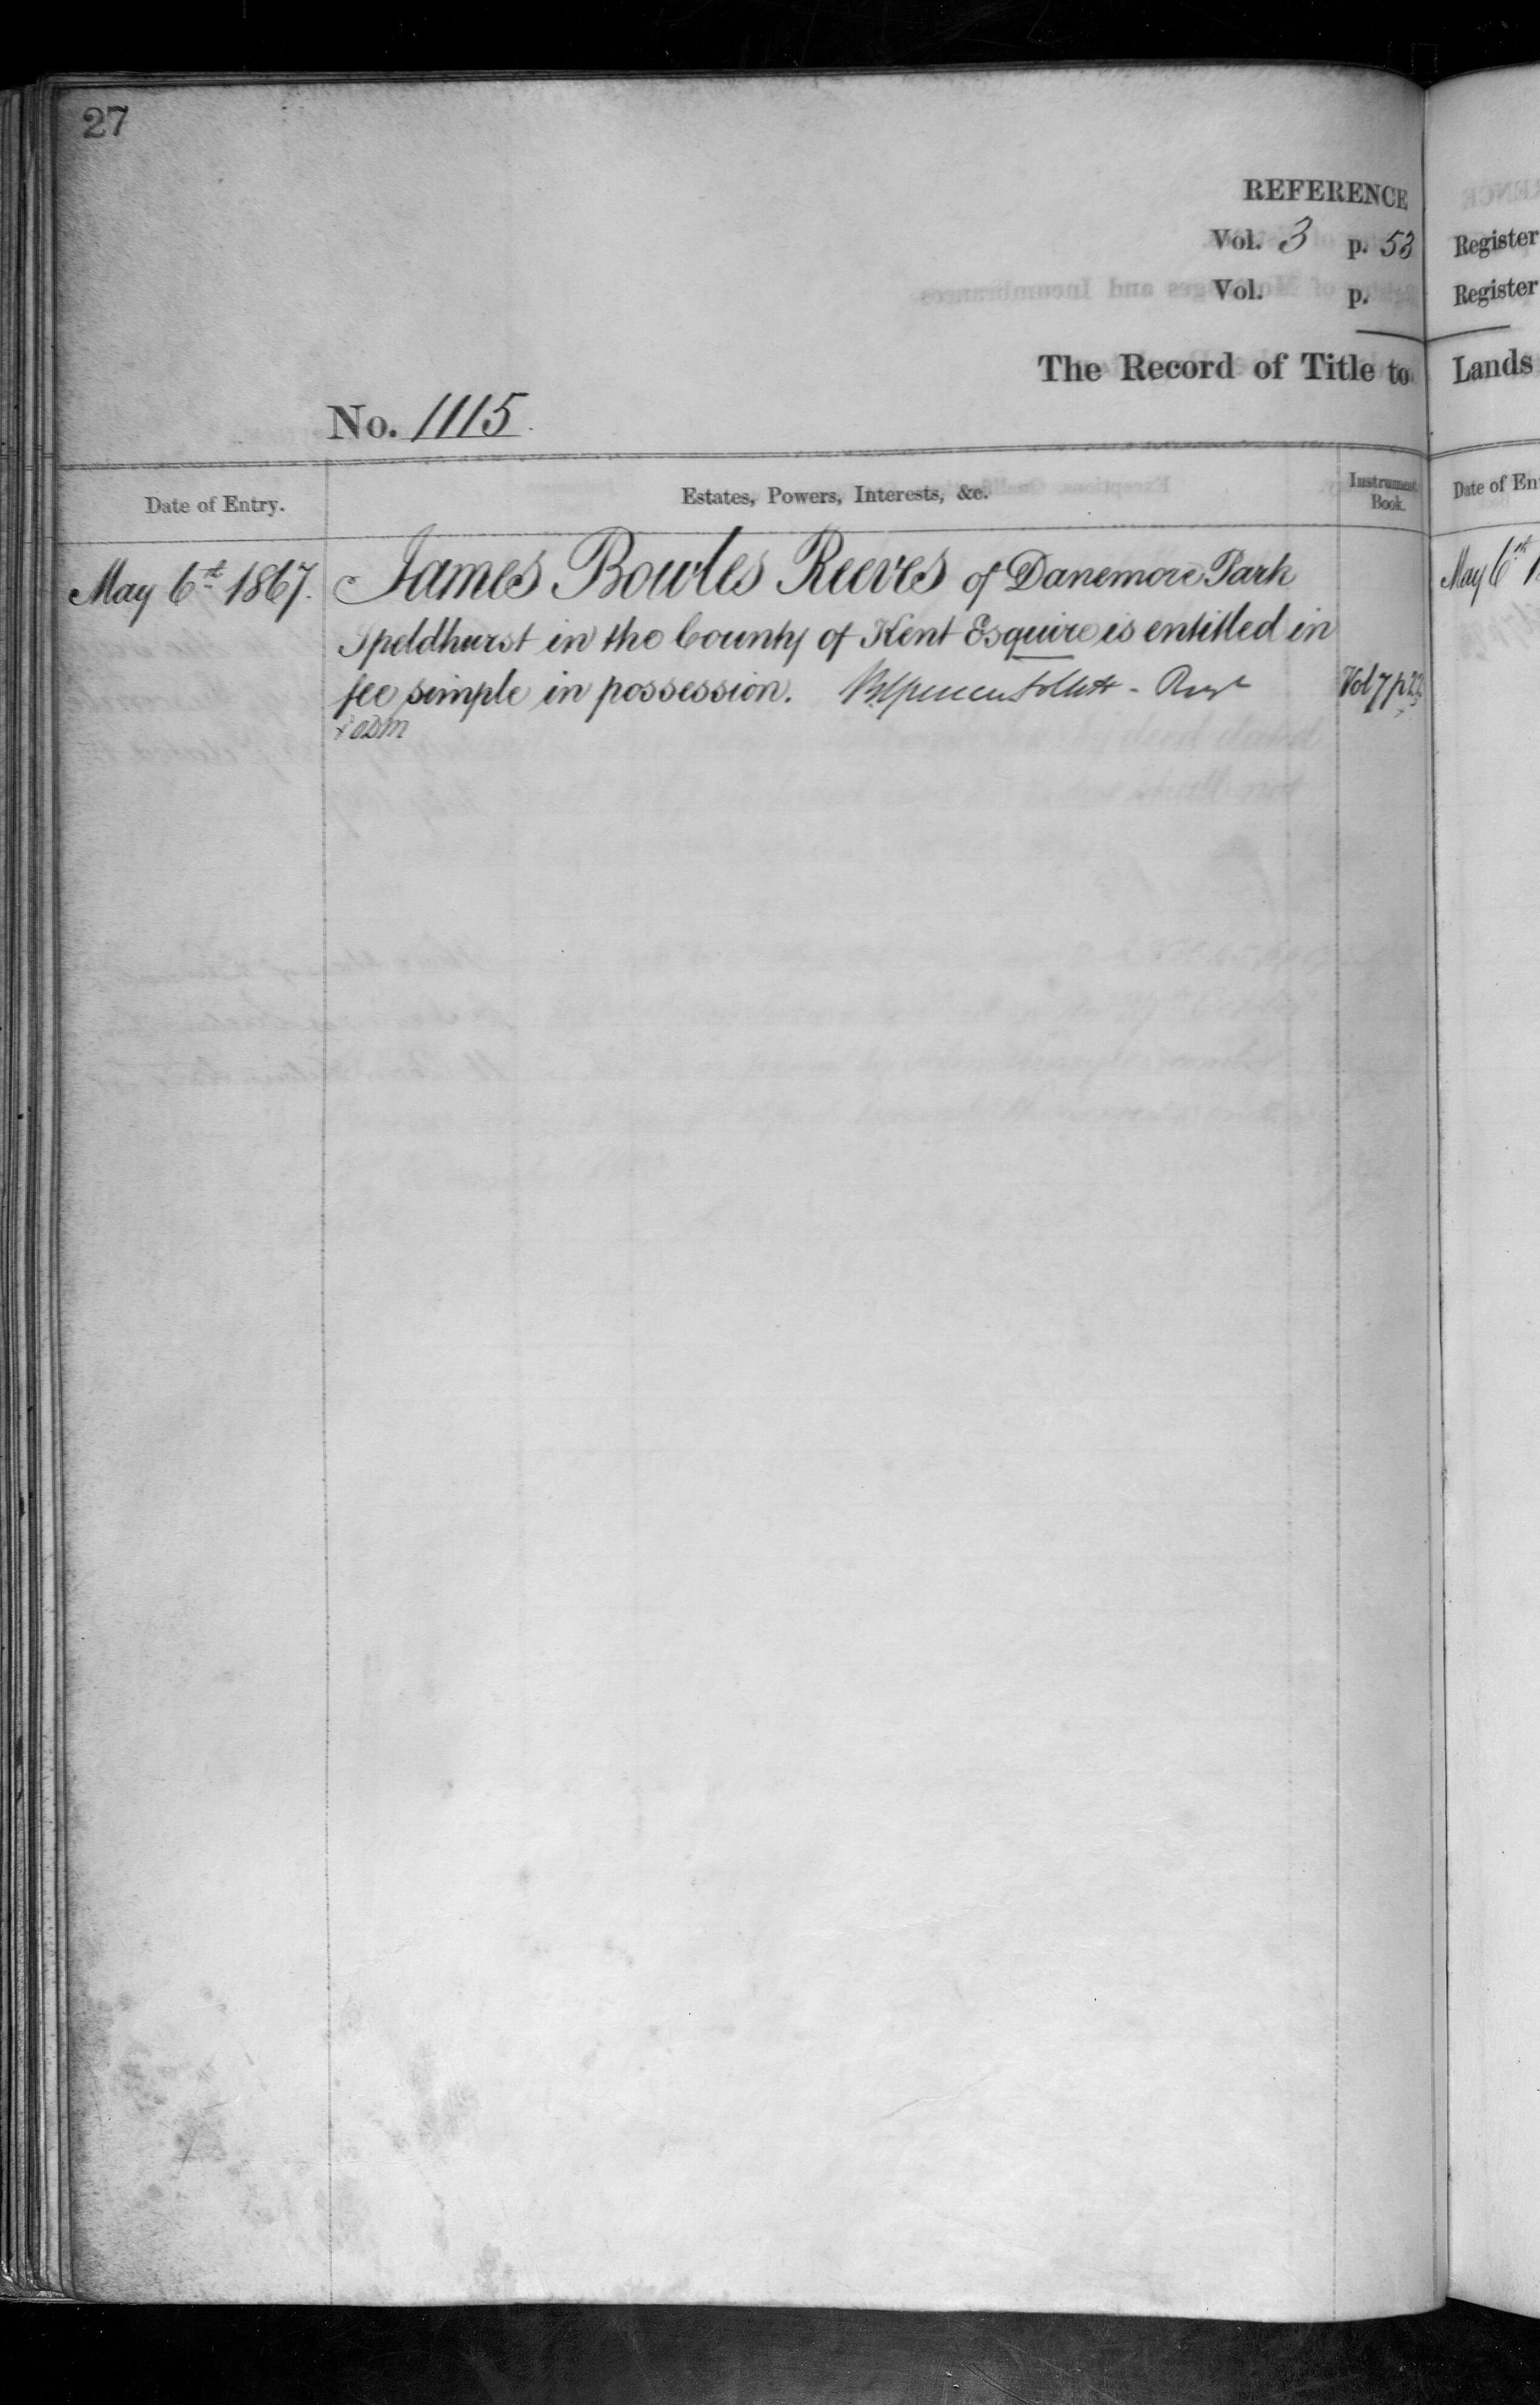 27
REFERENCE
Vol. 3 p. 53
Vol. p.
The Record of Title to
No. 1115.
Date of Entry.
Estates, Powers, Interests, &c.
Instrument Book.
May 6th 1867.
James Bowles Reeves of Danemore Park
Speldhurst in the County of Kent Esquire is entitled in
fee simple in possession. Brent Spencer Follett - Regr
Vol 7 p
Register
Register
Lands
Date of En
May 6th 1